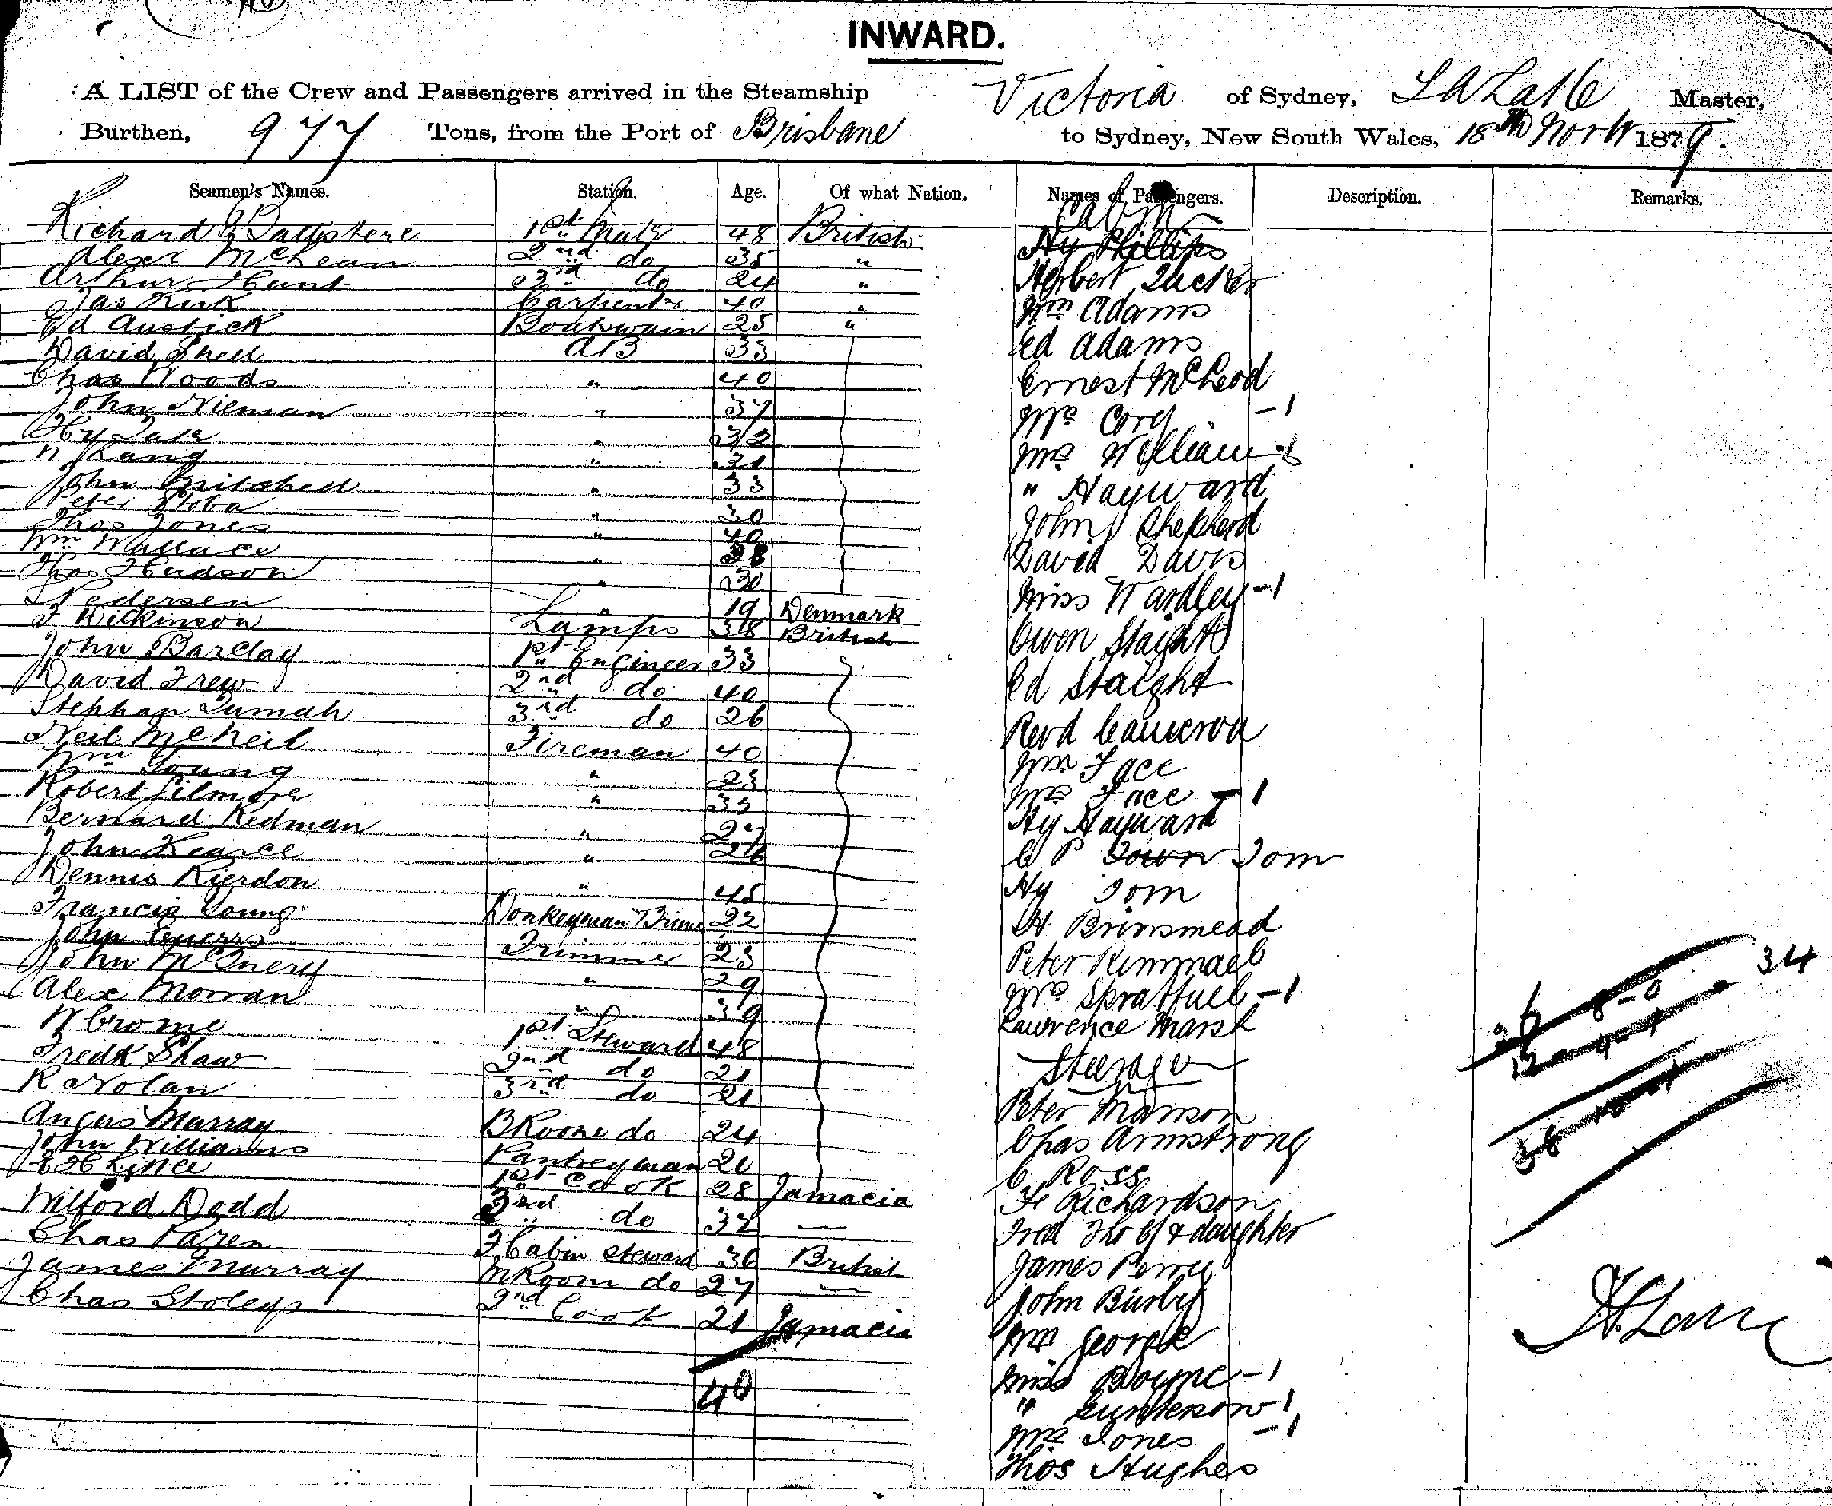 INWARD.
A LIST of the Crew and Passengers arrived in the Steamship Victoria of Sydney, Master,
Burthen, 977 Tons, from the Port of Brisbane to Sydney, New South Wales, 18th 1879.
Seamen's Names. Station. Age. Of what Nation. Names of Passengers. Description. Remarks.
Cabin
Richard 1st Mate 48 British Hy Phillips
Alexr McLean 2nd do 35 " Herbert Tucker
Arthur Hunt 3rd do 24 " Wm Adams
Jas Kirk Carpenter 40 " Ed Adams
Ed Austick Boatswain 25 " Ernest McLeod
David Snell AB 33 Mrs Cory -1
Chas Woods " 40 Mrs Williams
John Nieman " 37 " Hayward
Hy " 32 John Shepherd
Lang " 21 David Davis
John Pritchard " 33 Miss Wardley -1
Peter " 30 Owen Staight
Thos Jones " 40 Ed Staight
Wm Wallace " 38 Revd Cameron
Thos Hudson " 30 Wm Face
Pedersen " 19 Denmark Mrs Face -1
F Wilkinson Lamps 38 British Hy Hayward
John Barclay 1st Engineer 33 C P Town Tom
David Frew 2nd do 40 Hy Tom
Stephan 3rd do 26 H Brinsmead
Neil McNeil Fireman 40 Peter Kimmael
Wm Young " 23 Mrs -1
Robert Filmore " 33 Lawrence Marsh
Bernard Redman " 27 Steerage
John Kearce " 26 Peter Manson
Dennis Rierdon " 45 Chas Armstrong
Francis Young Donkeyman 22 C Ross
John Trimmer 23 H Richardson
John McInery " 29 Fred & daughter
Alex Morran " 39 James Perry
W Crome 1st Steward 48 John Busby
Fredk Shaw 2nd do 21 Wm George
R Nolan 3rd do 21 Miss -1
Angus Murray BRoom do 24 " Gunterson -1
John Williams Pantryman 20 Mrs Jones -1
1st Cook 28 Jamacia Thos Hughes
Wilford Dodd 2nd do 32
Chas Paren F Cabin Steward 36 British
James Murray MRoom do 27
Chas Stoleys 2nd Cook 21 Jamacia
40
34